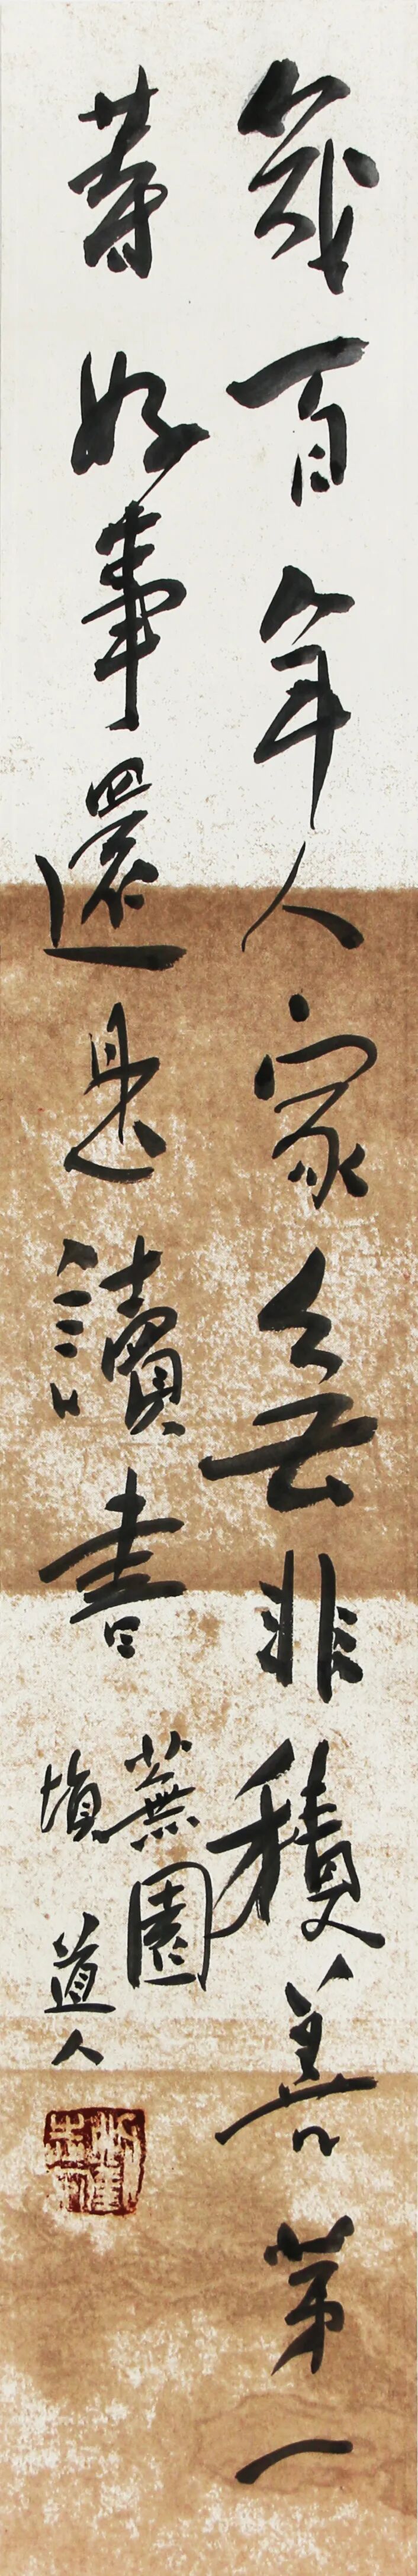 幾百年人家無非積善第一
等好事還是讀書
蕪園
填道人